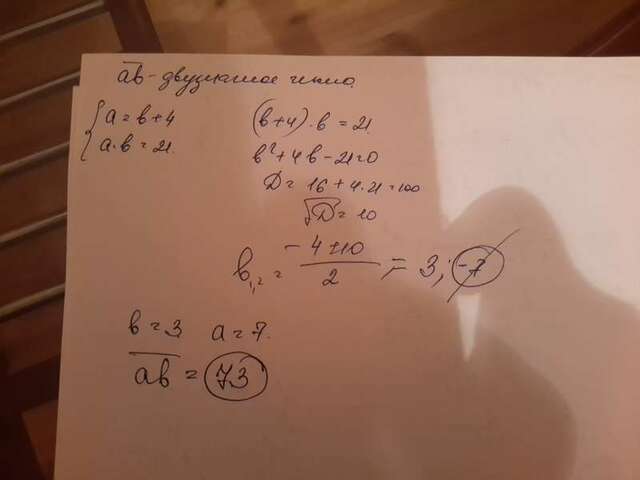 ab - двузначное число
{ a = b + 4
a · b = 21.
(b+4) · b = 21
b² + 4b - 21 = 0
D = 16 + 4·21 = 100
√D = 10
b₁,₂ = (-4±10)/2 = 3; -7
b = 3 a = 7.
ab = 73